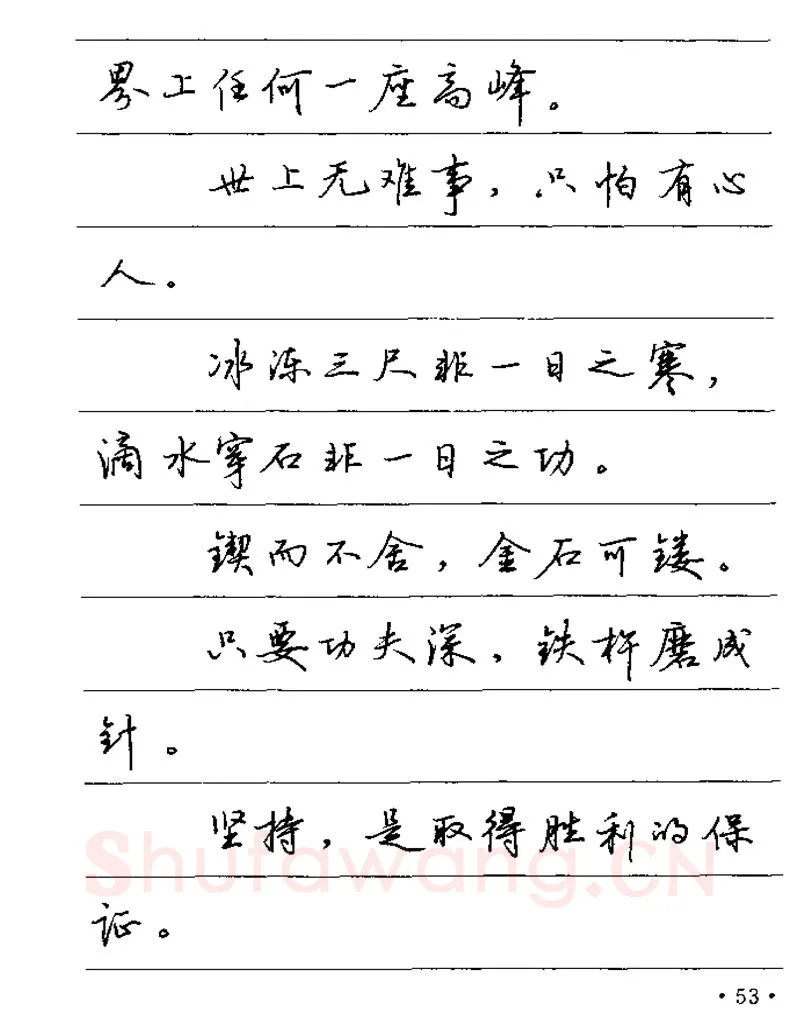 界上任何一座高峰。
世上无难事，只怕有心
人。
冰冻三尺非一日之寒，
滴水穿石非一日之功。
锲而不舍，金石可镂。
只要功夫深，铁杵磨成
针。
坚持，是取得胜利的保
证。
Shufawang.CN
·53·